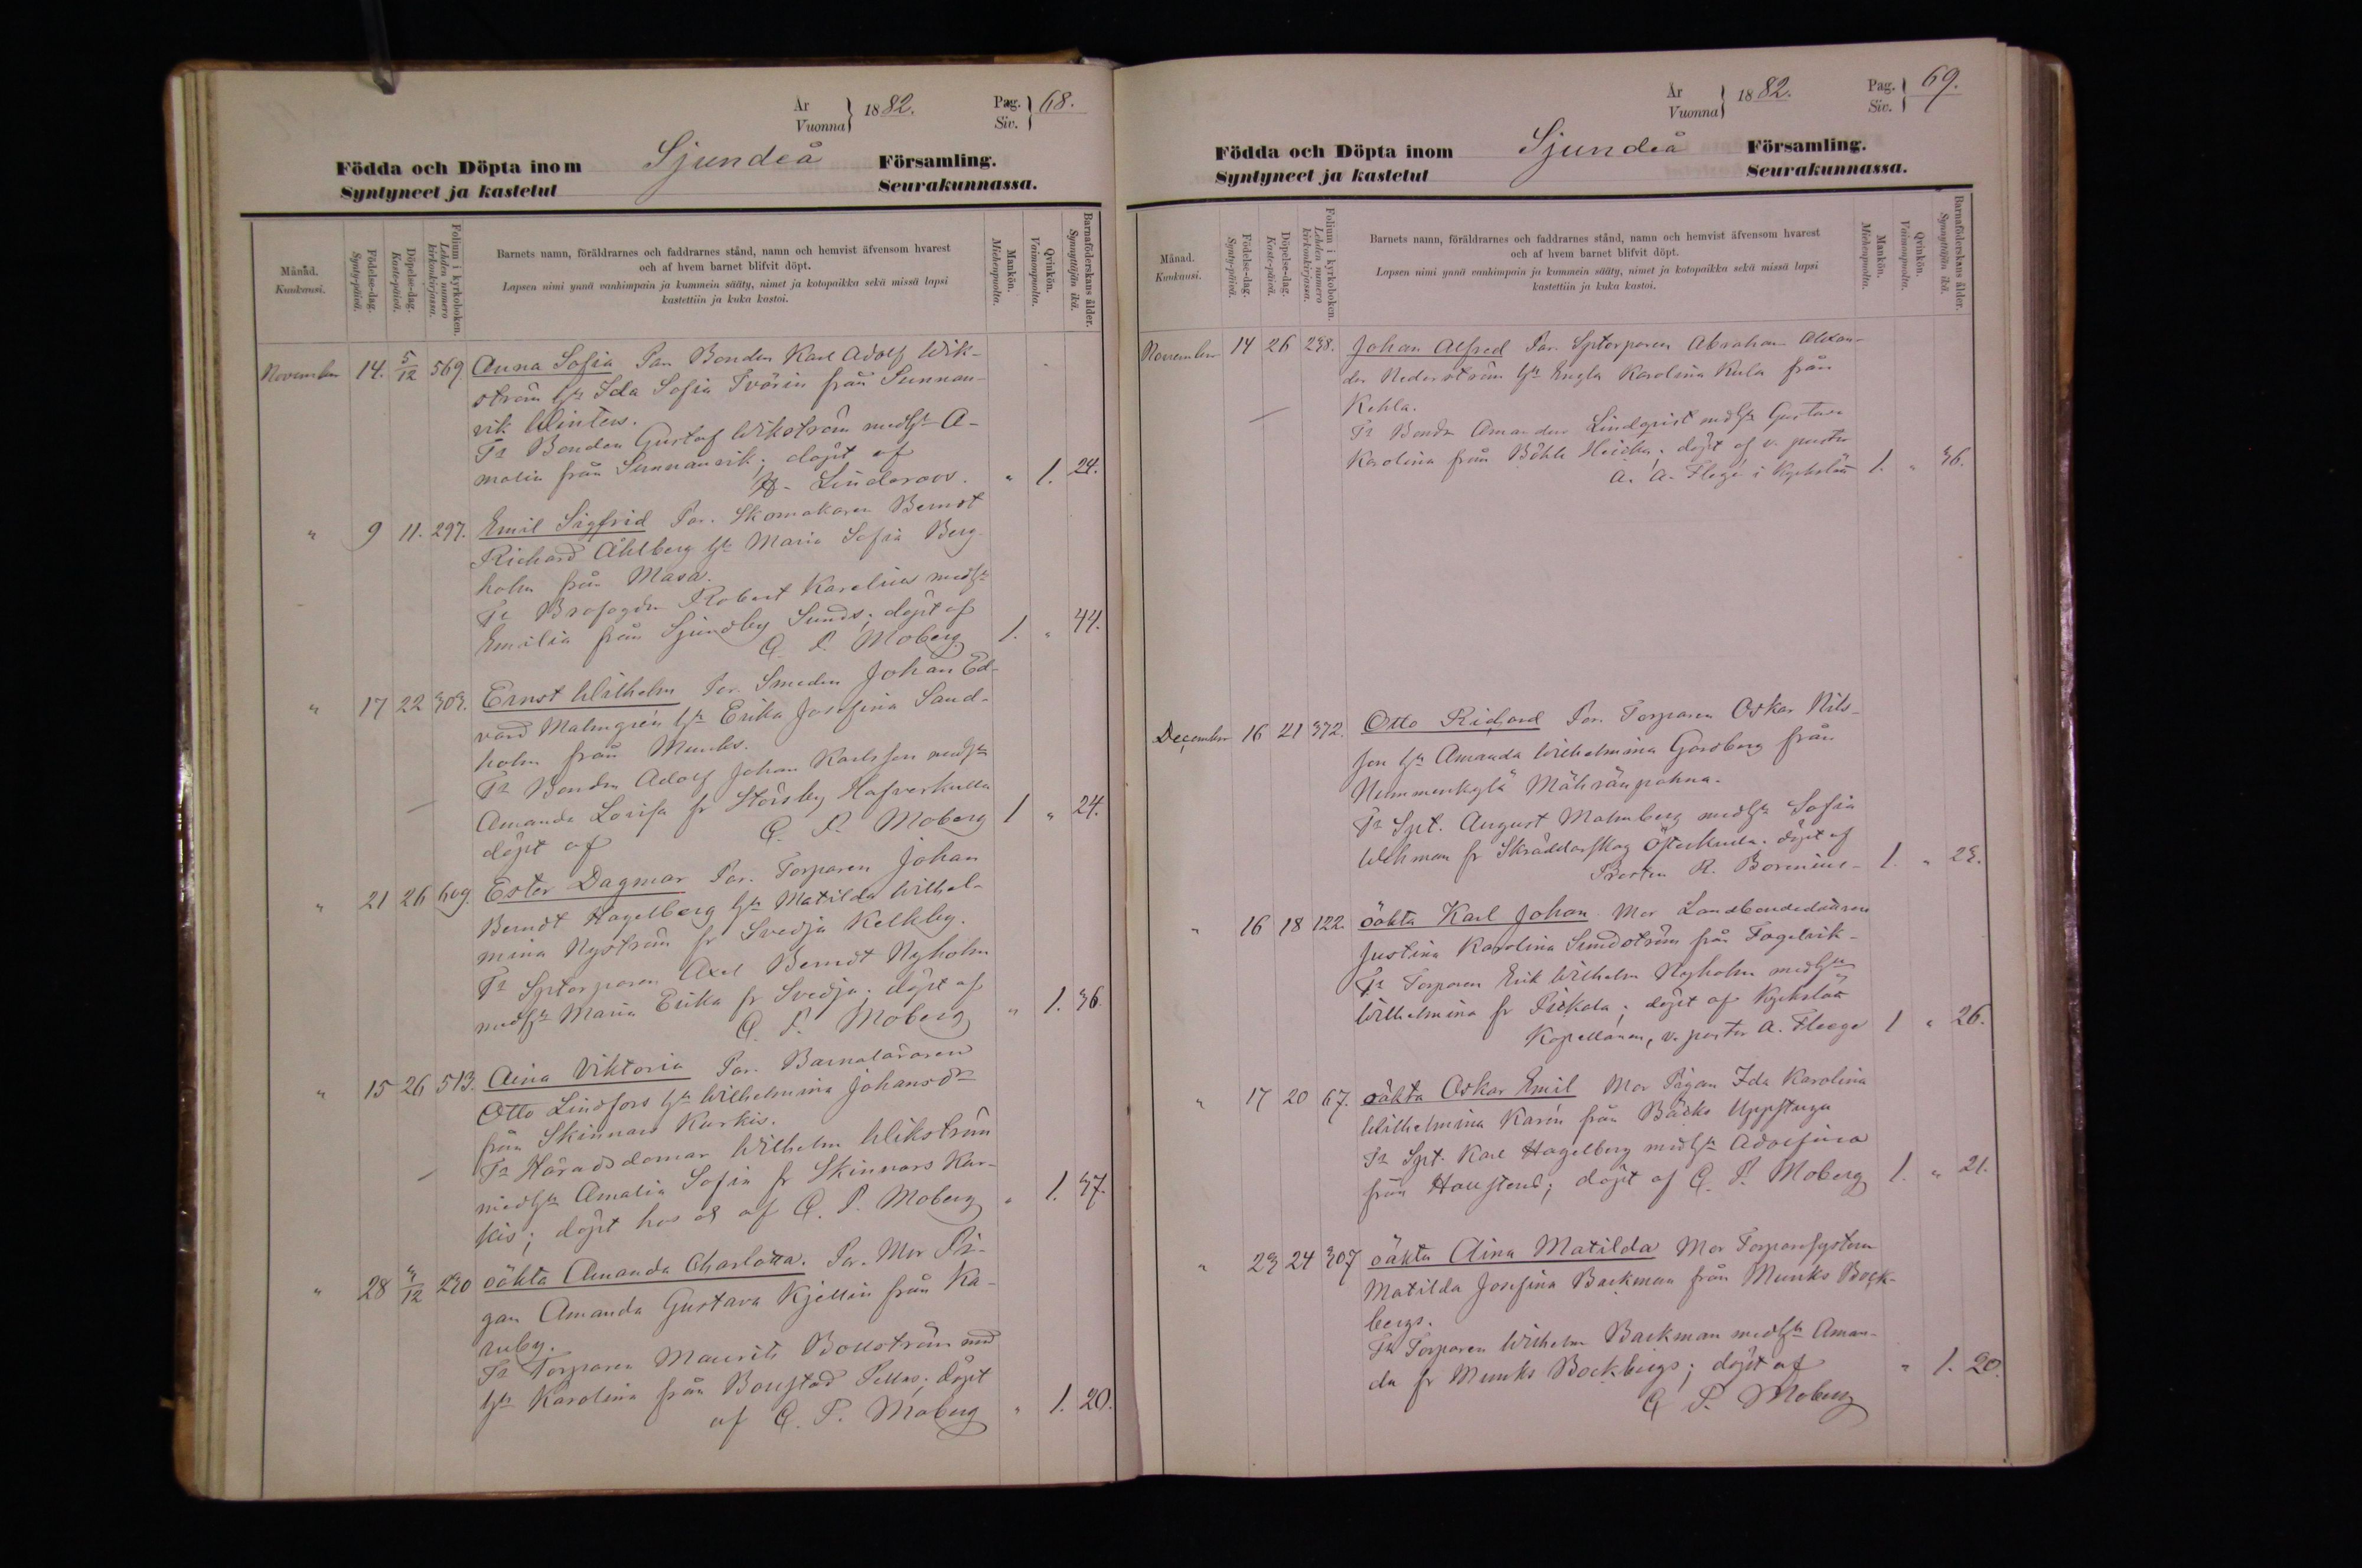 År
Vuonna
1882.
Pag.
Siv.
68.
Födda och Döpta inom Sjundeå Församling.
Syntyneet ja kastetut Seurakunnassa.
Månad.
Kuukausi.
Födelse-dag.
Synty-päivä.
Döpelse-dag.
Kaste-päivä.
Folium i kyrkoboken.
Lehden numero
kirkonkirjassa.
Barnets namn, föräldrarnes och faddrarnes stånd, namn och hemvist äfvensom hvarest
och af hvem barnet blifvit döpt.
Lapsen nimi ynnä vanhimpain ja kummein sääty, nimet ja kotopaikka sekä missä lapsi
kastettiin ja kuka kastoi.
Mankön.
Miehenpuolta.
Qvinkön.
Vaimonpuolta.
Barnaföderskans ålder.
Synnyttäjän ikä.
November 14. 5/12 569 Anna Sofia Par. Bonden Karl Adolf Wik-
ström h:u Ida Sofia Tvörin från Sunnan-
vik Wintens.
F:r Bonden Gustaf Wikström med h:u A-
malia från Sunnanvik; döpt af
Lindroos. " 1. 24.
" 9 11. 297. Emil Sigfrid Par. Skomakaren Berndt
Richard Åhlberg h:u Maria Sofia Berg-
holm från Masa.
F:r Brofogden Robert Karelius med h:u
Emilia från Sjundby Sunds; döpt af
G. P. Moberg 1. " 44.
" 17 22 303. Ernst Wilhelm Par. Smeden Johan Ed-
vard Malmgrén h:u Erika Josefina Sand-
holm från Munks.
F:r Bonden Adolf Johan Karlsson med h:u
Amanda Lovisa fr Störsby Hafverkulla
döpt af G. P. Moberg 1 " 24.
" 21 26 609. Ester Dagmar Par. Torparen Johan
Berndt Hagelberg h:u Matilda Wilhel-
mina Nyström fr Svedja Kelkby.
F:r Sptorparen Axel Berndt Nyholm
med h:u Maria Erika fr Svedja; döpt af
G. P. Moberg " 1. 36.
" 15 26 513. Aina Viktoria Par. Barnaläraren
Otto Lindfors h:u Wilhelmina Johansd:r
från Skinnars Kurkis.
F:r Häradsdomar Wilhelm Wikström
med h:u Amalia Sofia fr Skinnars Kur-
kis; döpt hos os af G. P. Moberg " 1. 37.
" 28 3/12 230 oäkta Amanda Charlotta. Par. Mor Pi-
gan Amanda Gustava Kjellin från Ka-
ruby.
F:r Torparen Maurits Bollström med
h:u Karolina från Bolstad Pellas; döpt
af G. P. Moberg " 1. 20.
År
Vuonna
1882.
Pag.
Siv.
69.
Födda och Döpta inom Sjundeå Församling.
Syntyneet ja kastetut Seurakunnassa.
Månad.
Kuukausi.
Födelse-dag.
Synty-päivä.
Döpelse-dag.
Kaste-päivä.
Folium i kyrkoboken.
Lehden numero
kirkonkirjassa.
Barnets namn, föräldrarnes och faddrarnes stånd, namn och hemvist äfvensom hvarest
och af hvem barnet blifvit döpt.
Lapsen nimi ynnä vanhimpain ja kummein sääty, nimet ja kotopaikka sekä missä lapsi
kastettiin ja kuka kastoi.
Mankön.
Miehenpuolta.
Qvinkön.
Vaimonpuolta.
Barnaföderskans ålder.
Synnyttäjän ikä.
November 14 26 238. Johan Alfred Par. Sptorparen Abraham Alexan-
der Nederström h:u Engla Karolina Kula från
Kehla.
F:r Bonden Amandus Lindqvist med h:u Gustava
Karolina från Böhle Heicka; döpt af v. pastor
A. A. Flege i Kyrkslätt 1. " 36.
December 16 21 372. Otto Richard Par. Torparen Oskar Nils-
son h:u Amanda Wilhelmina Gardberg från
Nummenkylä Mähränpohna.
F:r Spt. August Malmberg med h:u Sofia
Wekman fr Skräddarskog Österkulla. döpt af
Prosten R. Borenius 1. " 23.
" 16 18 122. oäkta Karl Johan Mor Landbondedottren
Justina Karolina Sundström från Fogelvik
F:r Torparen Erik Wilhelm Nyholm med h:u
Wilhelmina fr Pickala; döpt af Kyrkslätt
Kapellanen, v. pastor A. Fleege 1 " 26.
" 17 20 67. oäkta Oskar Emil Mor Pigan Ida Karolina
Wilhelmina Karén från Bäcks Uppstugu
F:r Spt. Karl Hagelberg med h:u Adolfina
från Hollstens; döpt af G. P. Moberg 1. " 21.
" 23 24 307 oäkta Aina Matilda Mor Torparesystern
Matilda Josefina Backman från Munks Bock-
bergs.
F:r Torparen Wilhelm Backman med h:u Aman-
da fr Munks Bockbergs; döpt af " 1. 20.
G P. Moberg